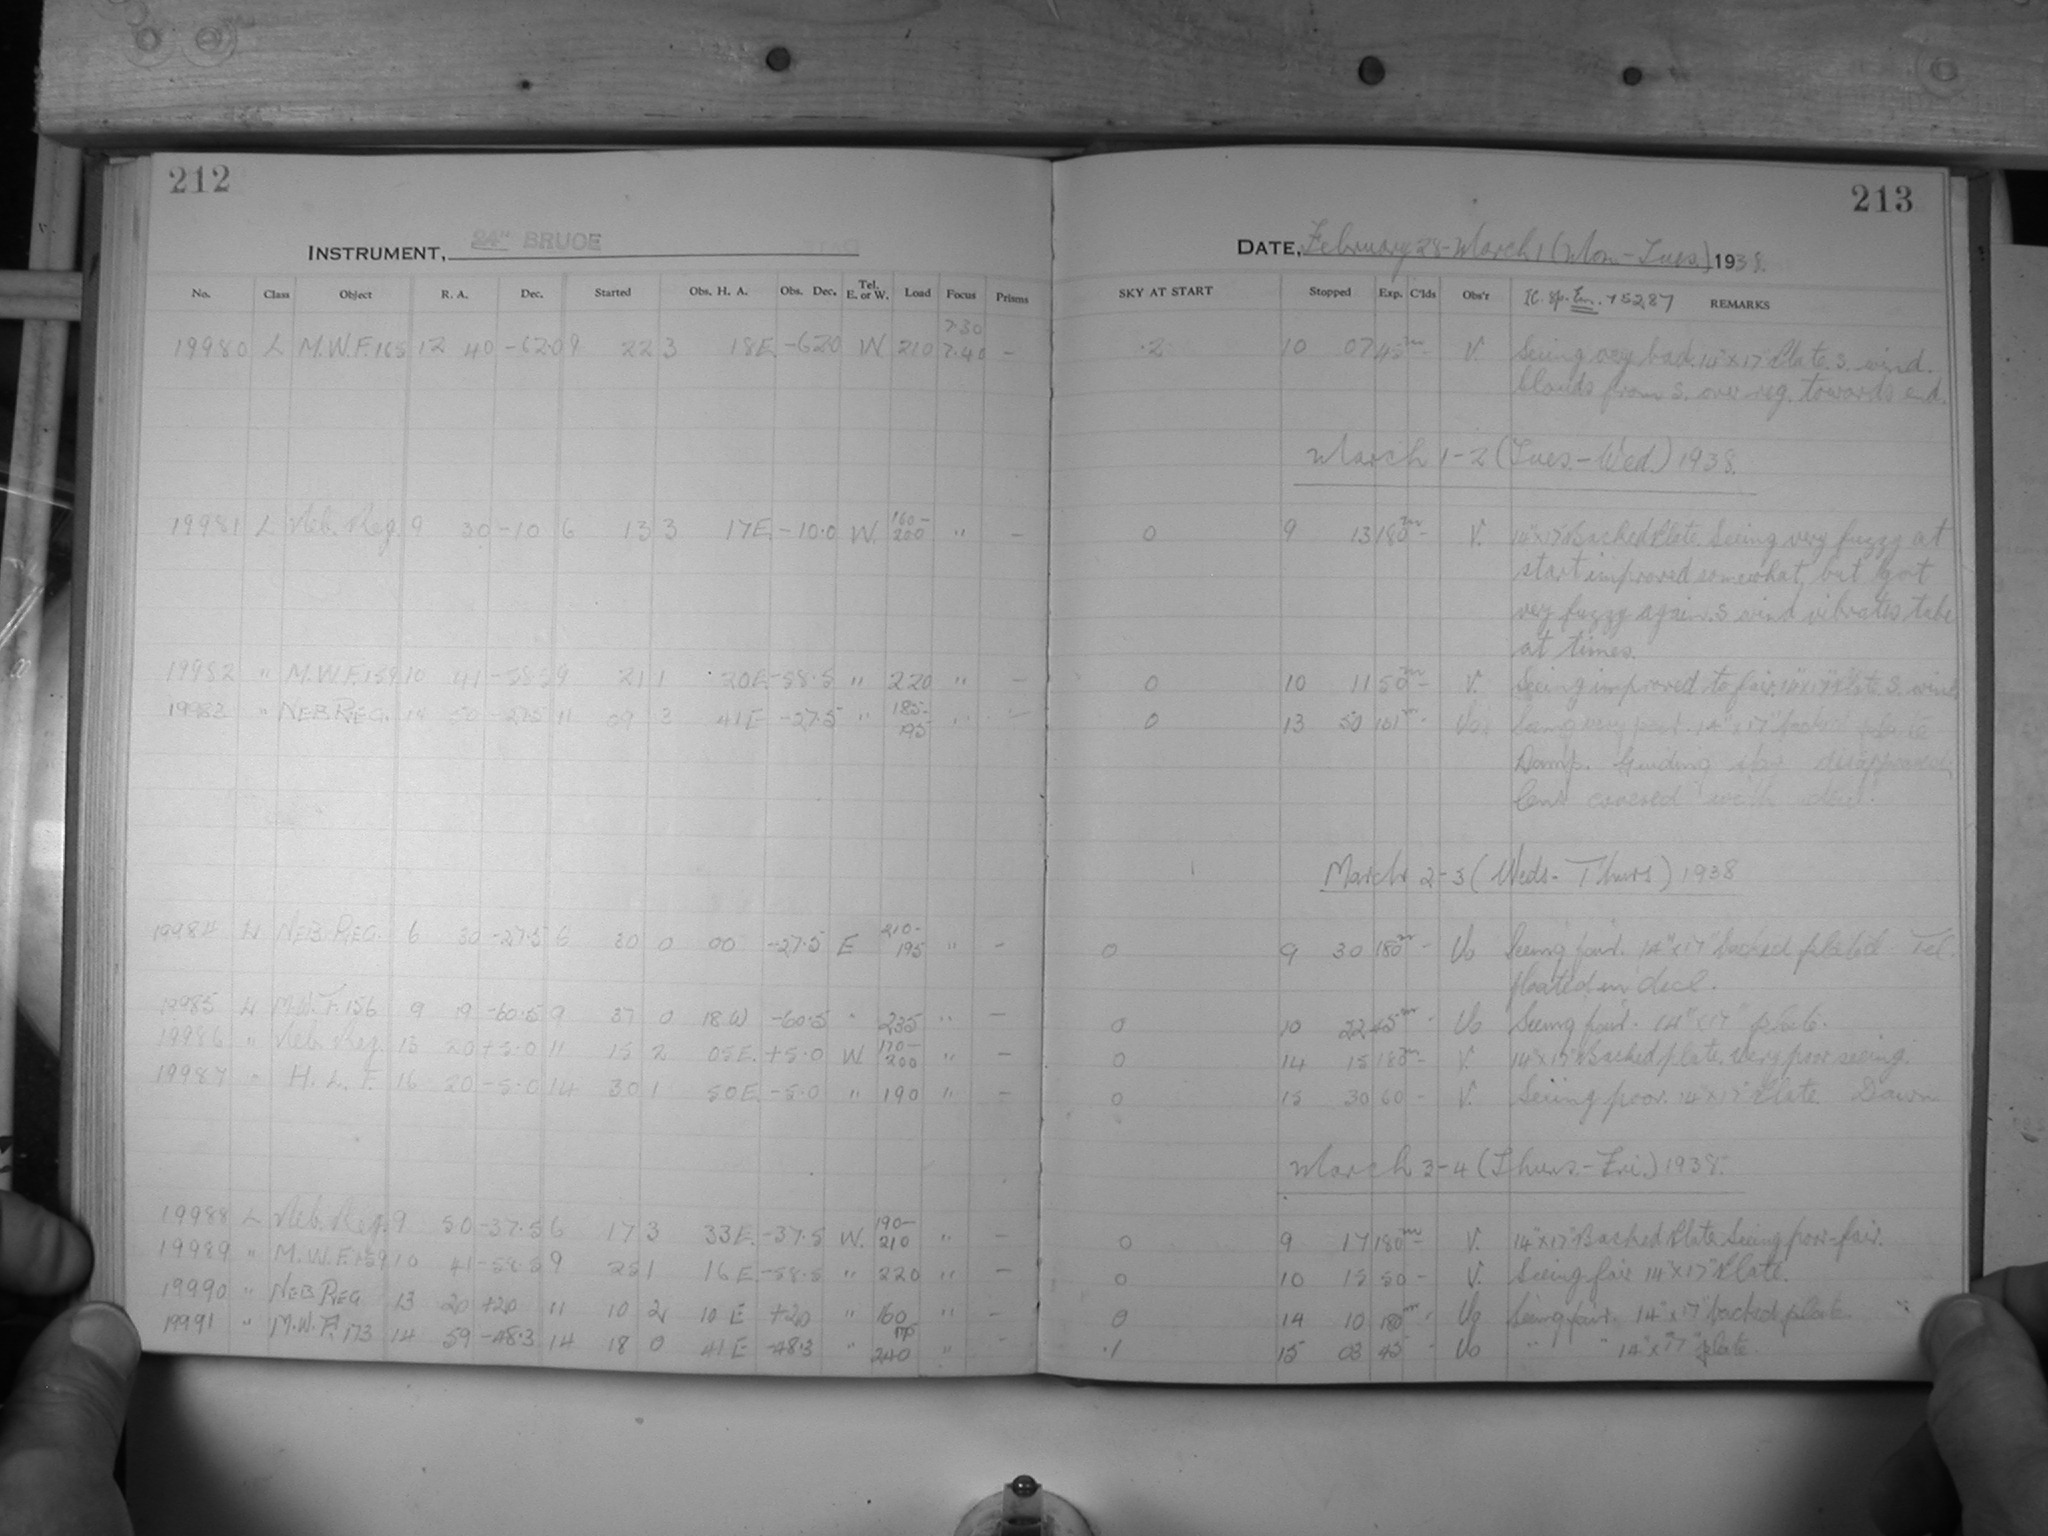 212
INSTRUMENT, 24" BRUCE
No. Class Object R. A. Dec. Started Obs. H. A. Obs. Dec. Tel. E. or W. Load Focus Prisms
7.30
19980 L M.W.F.165 12 40 -62.0 9 22 3 18E -62.0 W. 210 7.40 -
19981 L Neb. Reg. 9 30 -10 6 13 3 17E -10.0 W. 160-200 " -
19982 " M.W.F.159 10 41 -58.5 9 21 1 20E -58.5 " 220 " -
19983 " NEB REG. 14 50 -27.5 11 09 3 41E -27.5 " 185-195 " -
19984 L NEB REG. 6 30 -27.5 6 30 0 00 -27.5 E 210-195 " -
19985 L M.W.F.156 9 19 -60.5 9 37 0 18W -60.5 " 235 " -
19986 " Neb. Reg. 13 20 +5.0 11 15 2 05E. +5.0 W. 170-200 " -
19987 " H. L. F. 16 20 -5.0 14 30 1 50E. -5.0 " 190 " -
19988 L Neb. Reg. 9 50 -37.5 6 17 3 33E. -37.5 W. 190-210 " -
19989 " M.W.F.159 10 41 -58.5 9 25 1 16E -58.5 " 220 " -
19990 " NEB REG 13 20 +20 11 10 2 10 E +20 " 160 " -
19991 " M.W.F.173 14 59 -48.3 14 18 0 41E -48.3 " 240 " -
213
DATE, February 28-March 1 (Mon-Tues.) 1938.
SKY AT START Stopped Exp. C'lds Obs'r REMARKS
.2 10 07 45m - V. Seeing very bad. 14"x17" Plate. S. wind.
Clouds from S. over reg. towards end.
March 1-2 (Tues.-Wed.) 1938.
0 9 13 180m - V. 14"x17" Backed Plate. Seeing very fuzzy at
start improved somewhat, but got
very fuzzy again. S wind vibrates tube
at times.
0 10 11 50m - V. Seeing improved to fair. 14"x17" Plate S. wind
0 13 50 161m - Vo. Seeing very poor. 14"x17" backed plate
Damp. Guiding star disappeared.
Lens covered with dew.
March 2-3 (Weds-Thurs) 1938
0 9 30 180m - Vo Seeing fair. 14"x17" backed plate Tel.
floated in decl.
0 10 22 45m - Vo Seeing fair. 14"x17" plate.
0 14 15 180m - V. 14"x17" Backed plate. Very poor seeing.
0 15 30 60 - V. Seeing poor. 14"x17" Plate. Dawn
March 3-4 (Thurs.-Fri.) 1938.
0 9 17 180m - V. 14"x17" Backed Plate Seeing poor-fair.
0 10 15 50 - V. Seeing fair 14"x17" Plate.
0 14 10 180m - Vo Seeing fair. 14"x17" backed plate.
.1 15 03 45 - Vo " " 14"x17" plate.